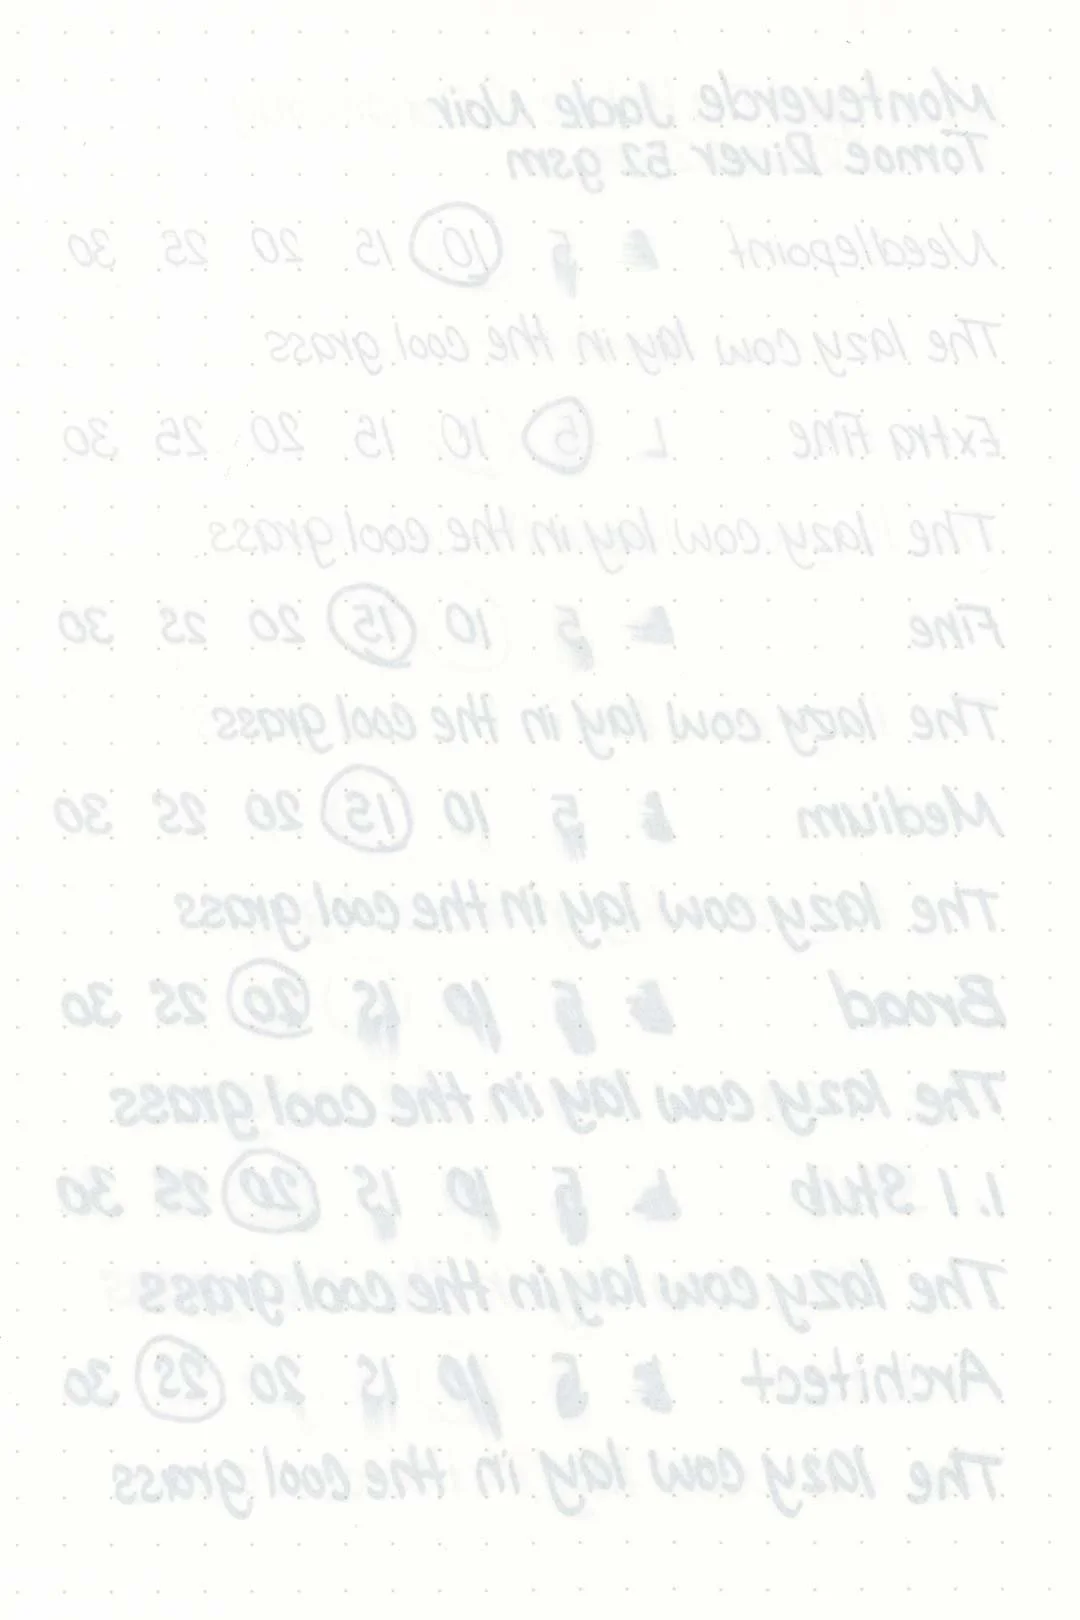 Monteverde Jade Noir
Tomoe River 52 gsm
Needlepoint 1 5 10 15 20 25 30
The lazy cow lay in the cool grass
Extra Fine 1 5 10 15 20 25 30
The lazy cow lay in the cool grass
Fine 1 5 10 15 20 25 30
The lazy cow lay in the cool grass
Medium 1 5 10 15 20 25 30
The lazy cow lay in the cool grass
Broad 1 5 10 15 20 25 30
The lazy cow lay in the cool grass
1.1 Stub 1 5 10 15 20 25 30
The lazy cow lay in the cool grass
Architect 1 5 10 15 20 25 30
The lazy cow lay in the cool grass